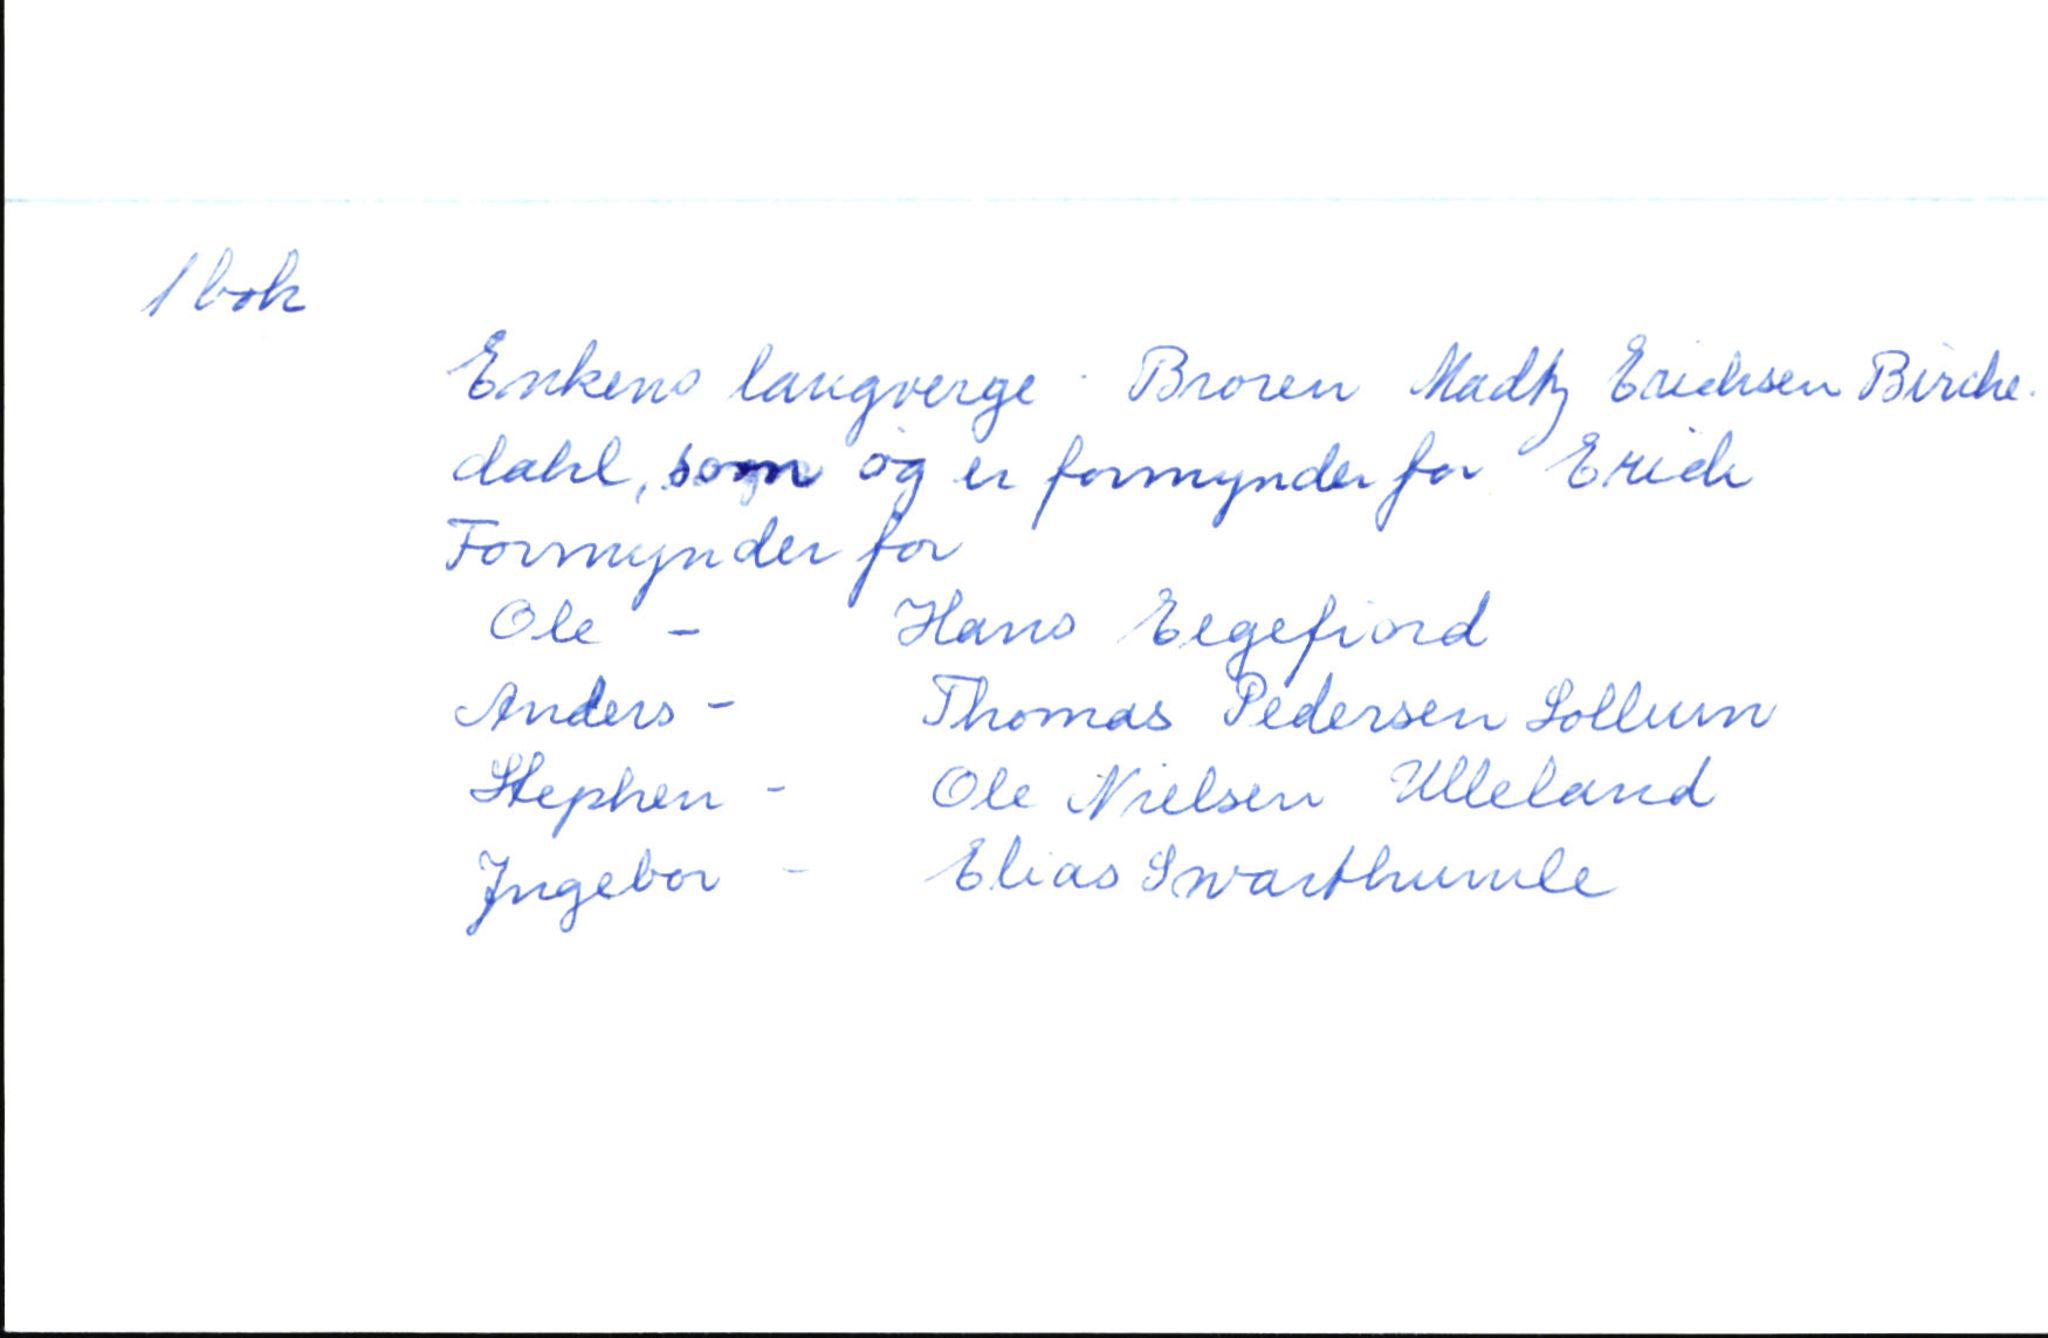 1 bok
Enkens laugverge. Broren Madtz Erichsen Birche-
dahl, som og er formynder for Erich
Formynder for
Ole - Hans Eegefiord
Anders - Thomas Pedersen Sollum
Stephen - Ole Nielsen Ulleland
Ingebor - Elias Swarthumle